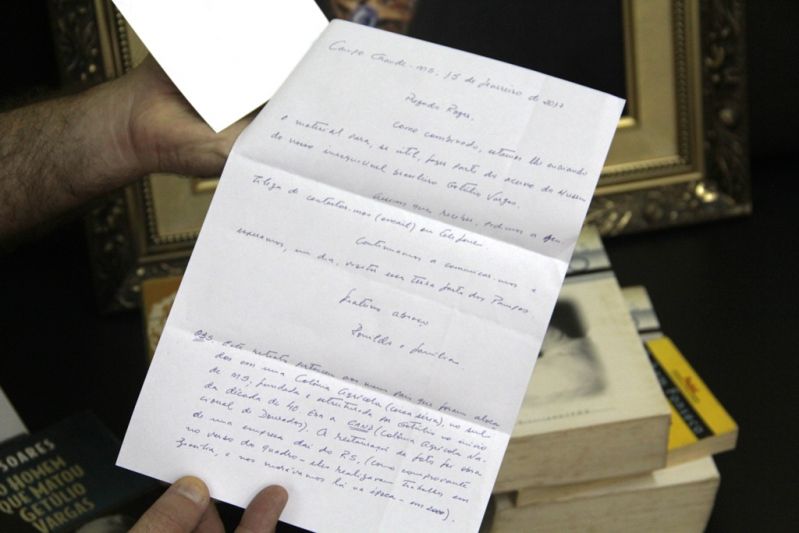 Campo Grande-MS, 15 de fevereiro de 2017
Prezado Roger,
Como combinado, estamos lhe enviando
o material para, se útil, fazer parte do acervo do Museu
do nosso inesquecível brasileiro Getúlio Vargas.
Assim que receber, pedimos a gen-
tileza de contactar-nos (email) ou telefonar.
Continuamos a comunicar-nos e
esperamos, um dia, visitar essa terra farta dos Pampas.
Fraterno abraço
Ronildo e família.
OBS: Este retrato pertenceu aos meus pais que foram aloca
dos em uma Colônia Agrícola (area), no sul
de MS, fundada e estruturada por Getúlio no início
da década de 40. Era a CAND (Colônia Agrícola Na-
cional de Dourados). A restauração da foto foi obra
de uma empresa daí do RS, (como comprovante
no verso do quadro - eles realizavam trabalhos em
Brasília, e nós morávamos lá na época - em 2000).
SOARES
O HOMEM
QUE MATOU
GETÚLIO
VARGAS